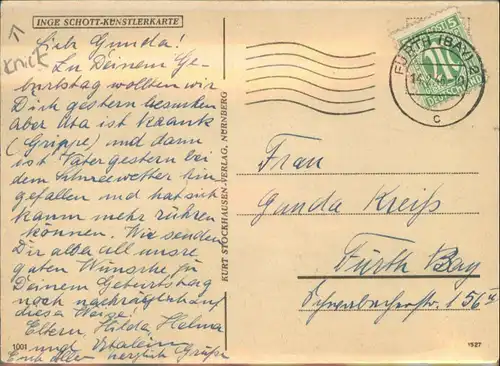 INGE SCHOTT-KÜNSTLERKARTE
Knick
Liebe Gunda!
Zu Deinem Ge-
burtstag wollten wir
Dich gestern besuchen
aber Uta ist krank
(Grippe) und dann
ist Vater gestern bei
dem Schneewetter hin
gefallen und hat sich
kaum mehr rühren
können. Wir senden
Dir aber all unsre
guten Wünsche zu
Deinem Geburtstag
noch nachträglich auf
diese Weise!
Eltern, Hilda, Helma
und
Euch allen herzlich Grüße
1001
KURT STOCKHAUSEN-VERLAG, NÜRNBERG
FÜRTH (BAY) 2
c
DEUTSCHE
5
Frau
Gunda Kreiß
Fürth Bay
156
1527